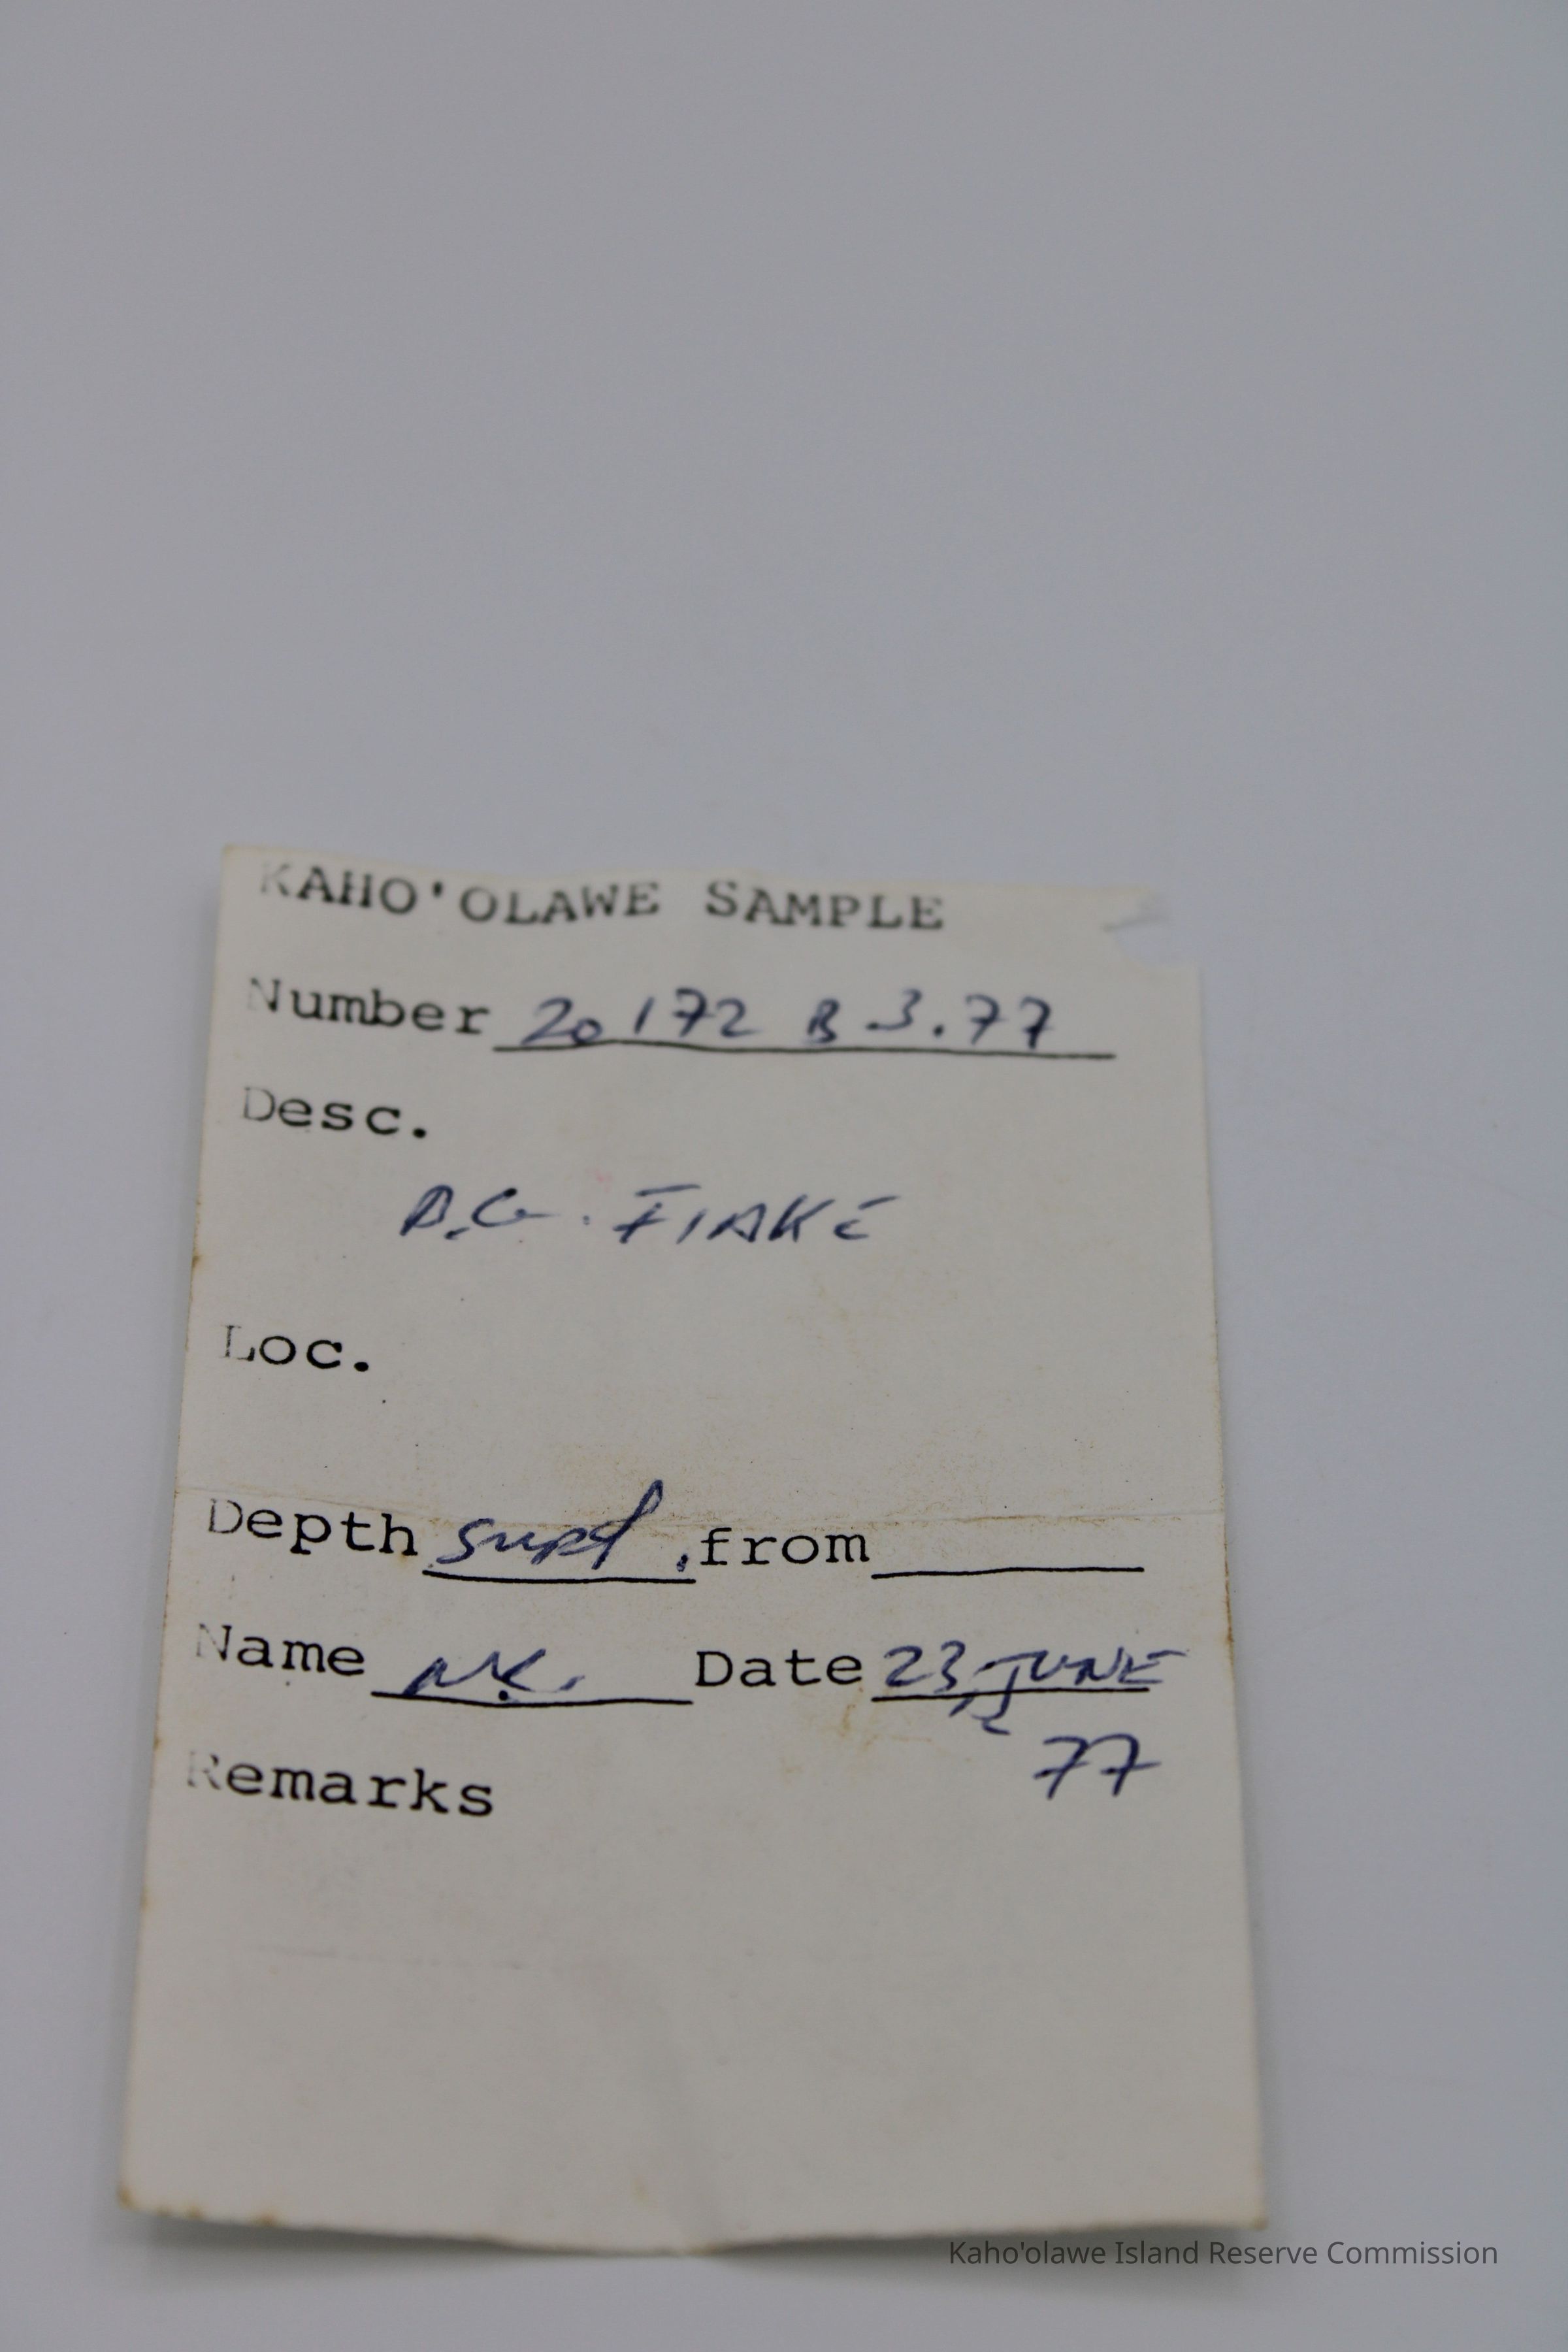 KAHO'OLAWE SAMPLE
Number 20 172 B 3.77
Desc.
B.G. FLAKE
Loc.
Depth surf. , from
Name N.K. Date 23 JUNE
77
Remarks
Kaho'olawe Island Reserve Commission